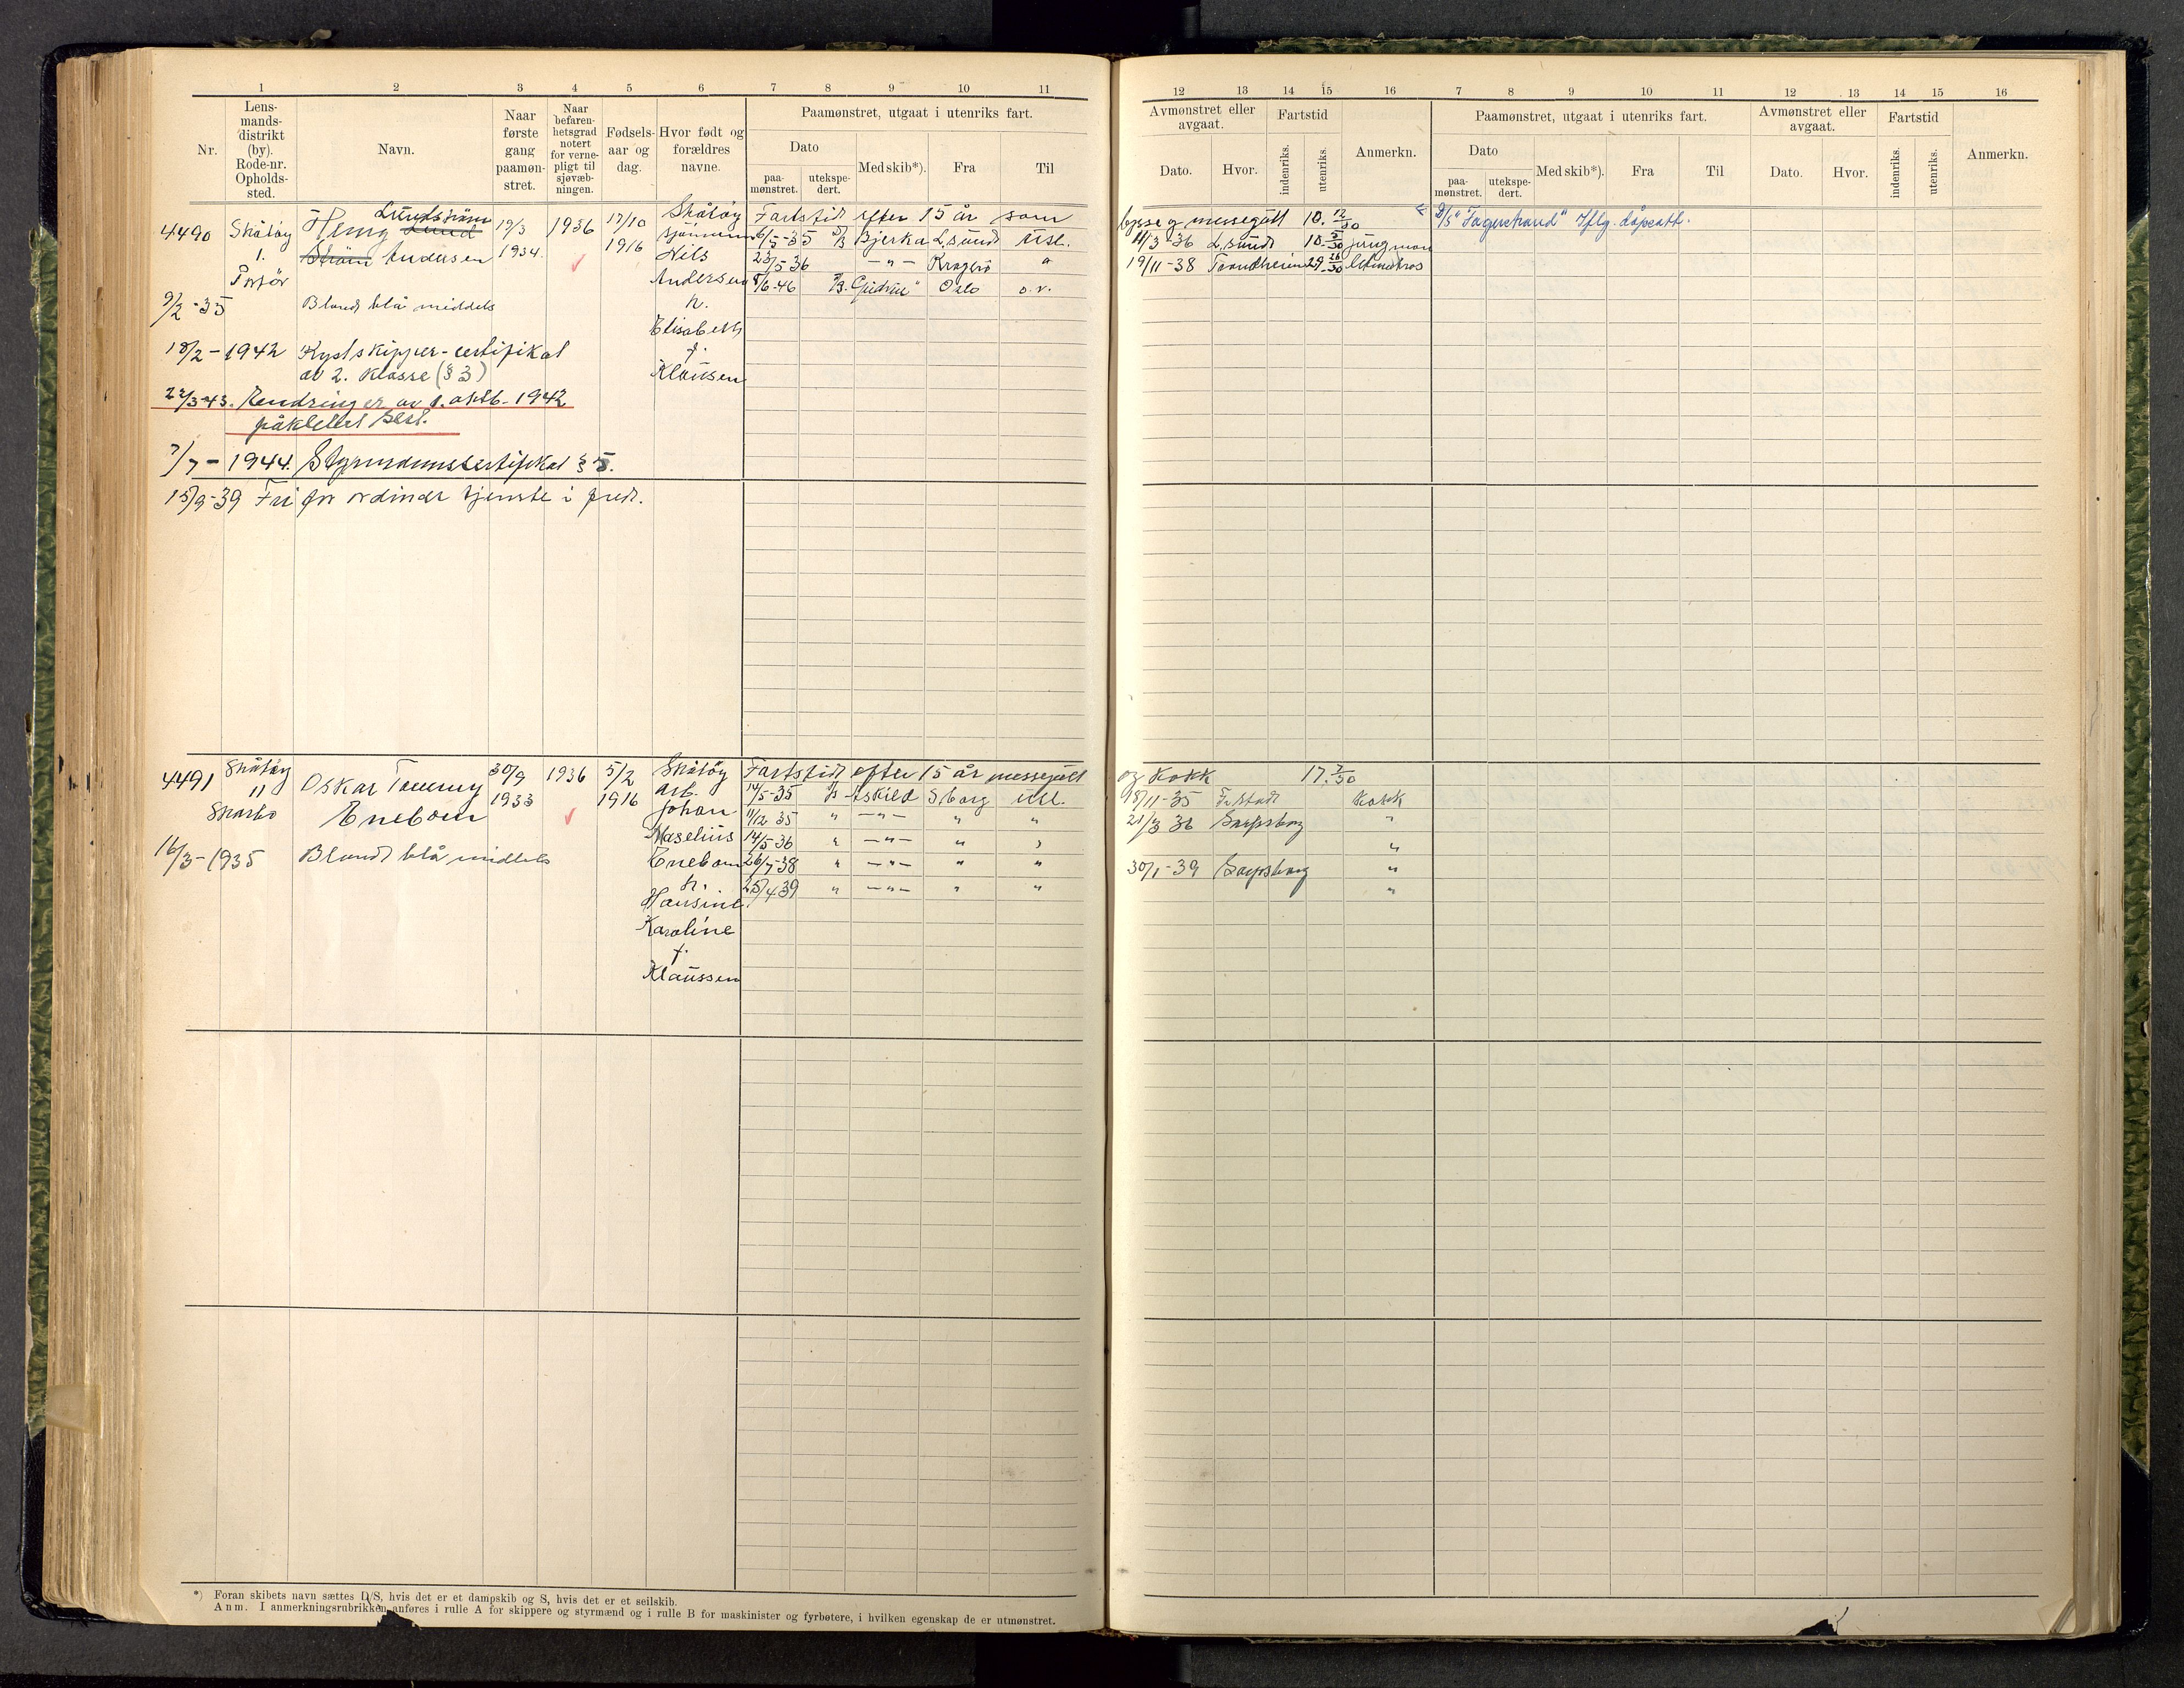 1 2 3 4 5 6 7 8 9 10 11
Nr.
Lens-
mands-
distrikt
(by).
Rode-nr.
Opholds-
sted.
Navn.
Naar
første
gang
paamøn-
stret.
Naar
befaren-
hetsgrad
notert
for verne-
pligt til
sjøvæb-
ningen.
Fødsels-
aar og
dag.
Hvor født og
forældres
navne.
Paamønstret, utgaat i utenriks fart.
Dato
paa-
mønstret.
utekspe-
dert.
Med skib*).
Fra
Til
4490 Skåtøy
1.
Portør
9/2-35
Lundstrøm
Henry Lund
Strøm Andersen
Blond blå middels
19/3
1934.
1936
17/10
1916
Skåtøy
sjømann
Nils
Andersen
h.
Elisabeth
f.
Klausen
Fartstid efter 15 år som
6/5-35 D/S Bjerka L.sund Utl.
23/5 36 -"- Kragerø "
8/6-46 Oslo o.v.
18/2-1942 Kystskipper-certifikat
av 2. klasse (§ 3)
22/3-43. Endringer av 1. oktb. 1942
påklebet best.
7/7-1944. Styrmannscertifikat § 5.
15/9-39 Fri for ordinær tjenste i fred.
4491 Skåtøy
11
16/3-1935
Oskar Tommy
Enebom
Blond blå middels
30/9
1933
1936
5/2
1916
Skåtøy
arb.
Johan
Maselius
Enebom
h.
Hansine
Karoline
f.
Klaussen
Fartstid efter 15 år messegutt
14/5-35 D/S Askild S.borg Utl.
11/12 35 " -"- " "
14/5-36 " -"- " "
26/7-38 " -"- " "
25/4 39 " -"- " "
*) Foran skibets navn sættes D/S, hvis det er et dampskib og S, hvis det er et seilskib.
Anm. I anmerkningsrubrikken anføres i rulle A for skippere og styrmænd og i rulle B for maskinister og fyrbøtere, i hvilken egenskap de er utmønstret.
12 13 14 15 16 7 8 9 10 11 12 13 14 15 16
Avmønstret eller
avgaat.
Dato.
Hvor.
Fartstid
indenriks.
utenriks.
Anmerkn.
Paamønstret, utgaat i utenriks fart.
Dato
paa-
mønstret.
utekspe-
dert.
Med skib*).
Fra
Til
Avmønstret eller
avgaat.
Dato.
Hvor.
Fartstid
indenriks.
utenriks.
Anmerkn.
bysse og messegutt 10. 12/30
11/3-36 L.sund 10. 5/30 jungmann
19/11-38 Trondheim 29. 26/30
D/S "Fagerstrand" Iflg. dåpsatt.
og kokk 17. 7/30
18/11-35 Fr.stad kokk
21/3 36 Sarpsborg "
"
30/1-39 Sarpsborg "
"